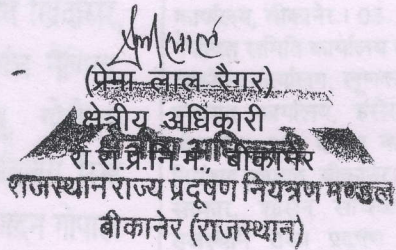 (प्रेमा लाल रैगर)
क्षेत्रीय अधिकारी
रा.रा.प्र.नि.मं., बीकानेर
राजस्थान राज्य प्रदूषण नियंत्रण मण्डल
बीकानेर (राजस्थान)